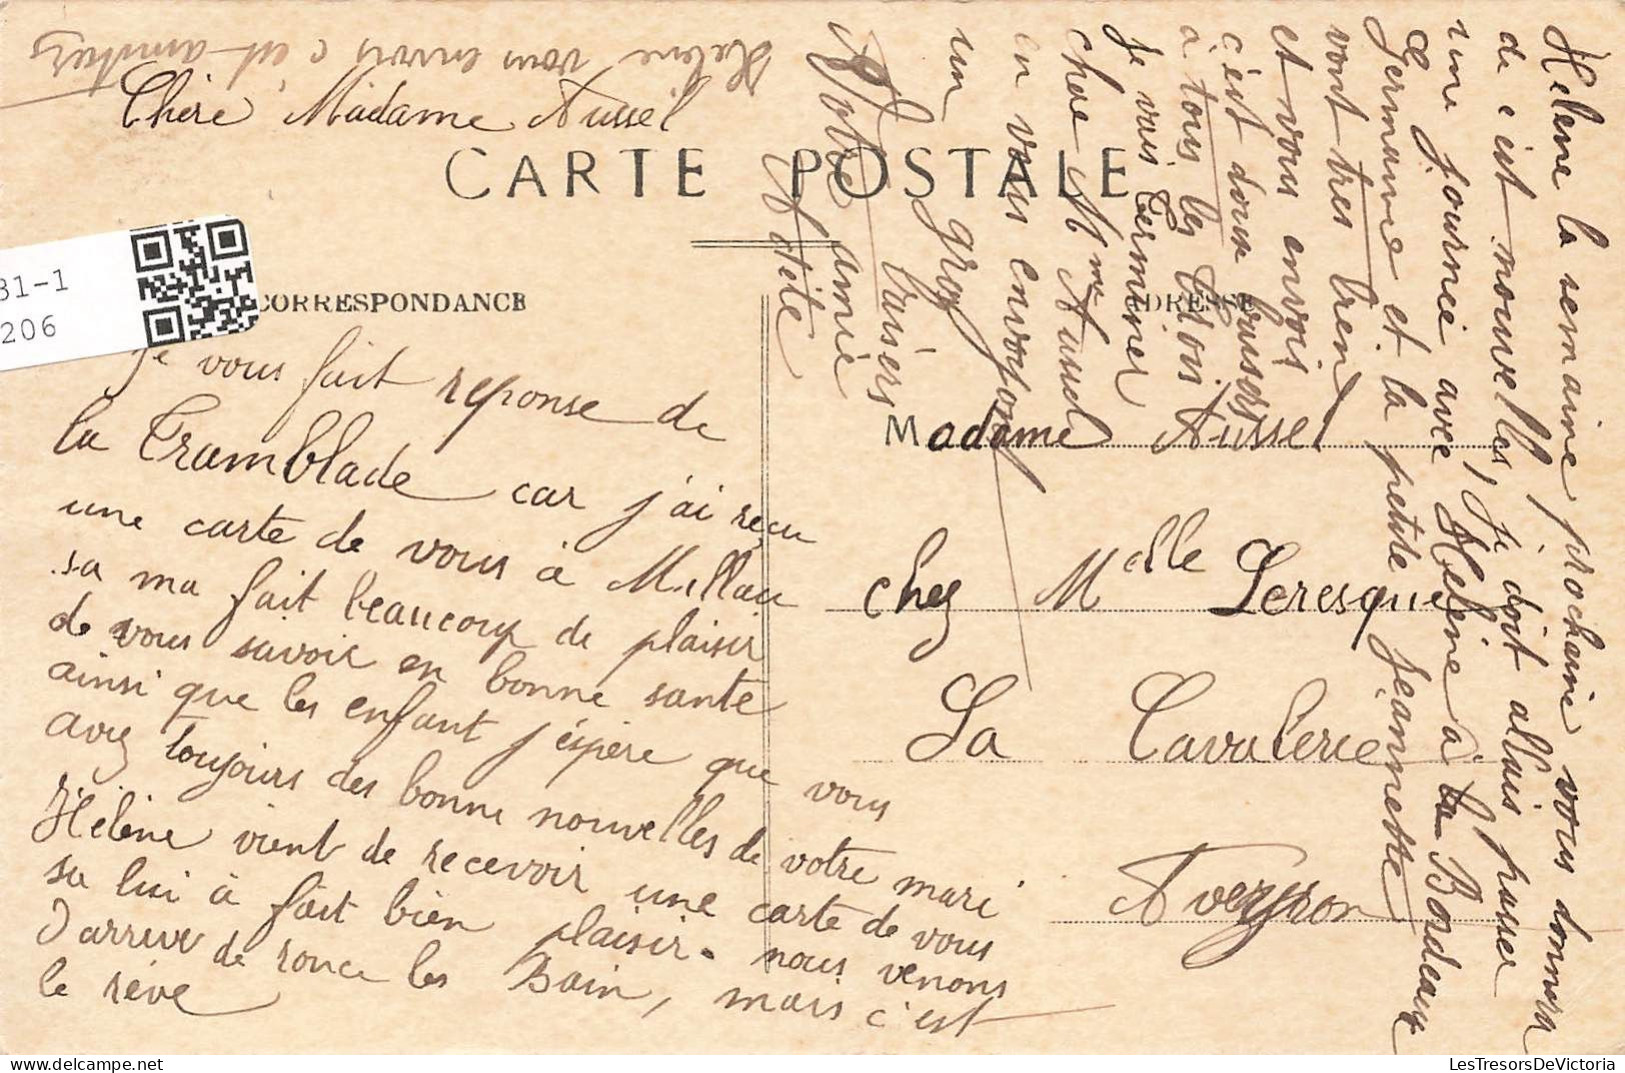 Helene vous envois c'est amitiers
Chère Madame Aussel
CARTE POSTALE
31-1
206
CORRESPONDANCE
ADRESSE
Je vous fait reponse de
la Tramblade car j'ai reçu
une carte de vous à Millau
sa ma fait beaucoup de plaisir
de vous savoir en bonne sante
ainsi que les enfant j'éspère que vous
avez toujours des bonne nouvelles de votre mari
Hélène vient de recevoir une carte de vous
sa lui à fait bien plaisir. nous venons
d'arrive de ronce les Bain, mais c'est
le rève
Madame Aussel
chez Melle Leresque
La Cavalerie
Aveyron
Helene la semaine prochaine vous donnera
de c'est nouvelles, Je doit allais passer
une journée avec Hélène a la Bordeaux
Germaine et la petite Jeannette
vont tres bien
et vous envois
c'est doux baisers
a tous les trois
Je vais terminer
chere Mme Aussel
en vous envoyant
un gros baisers
Votre amie